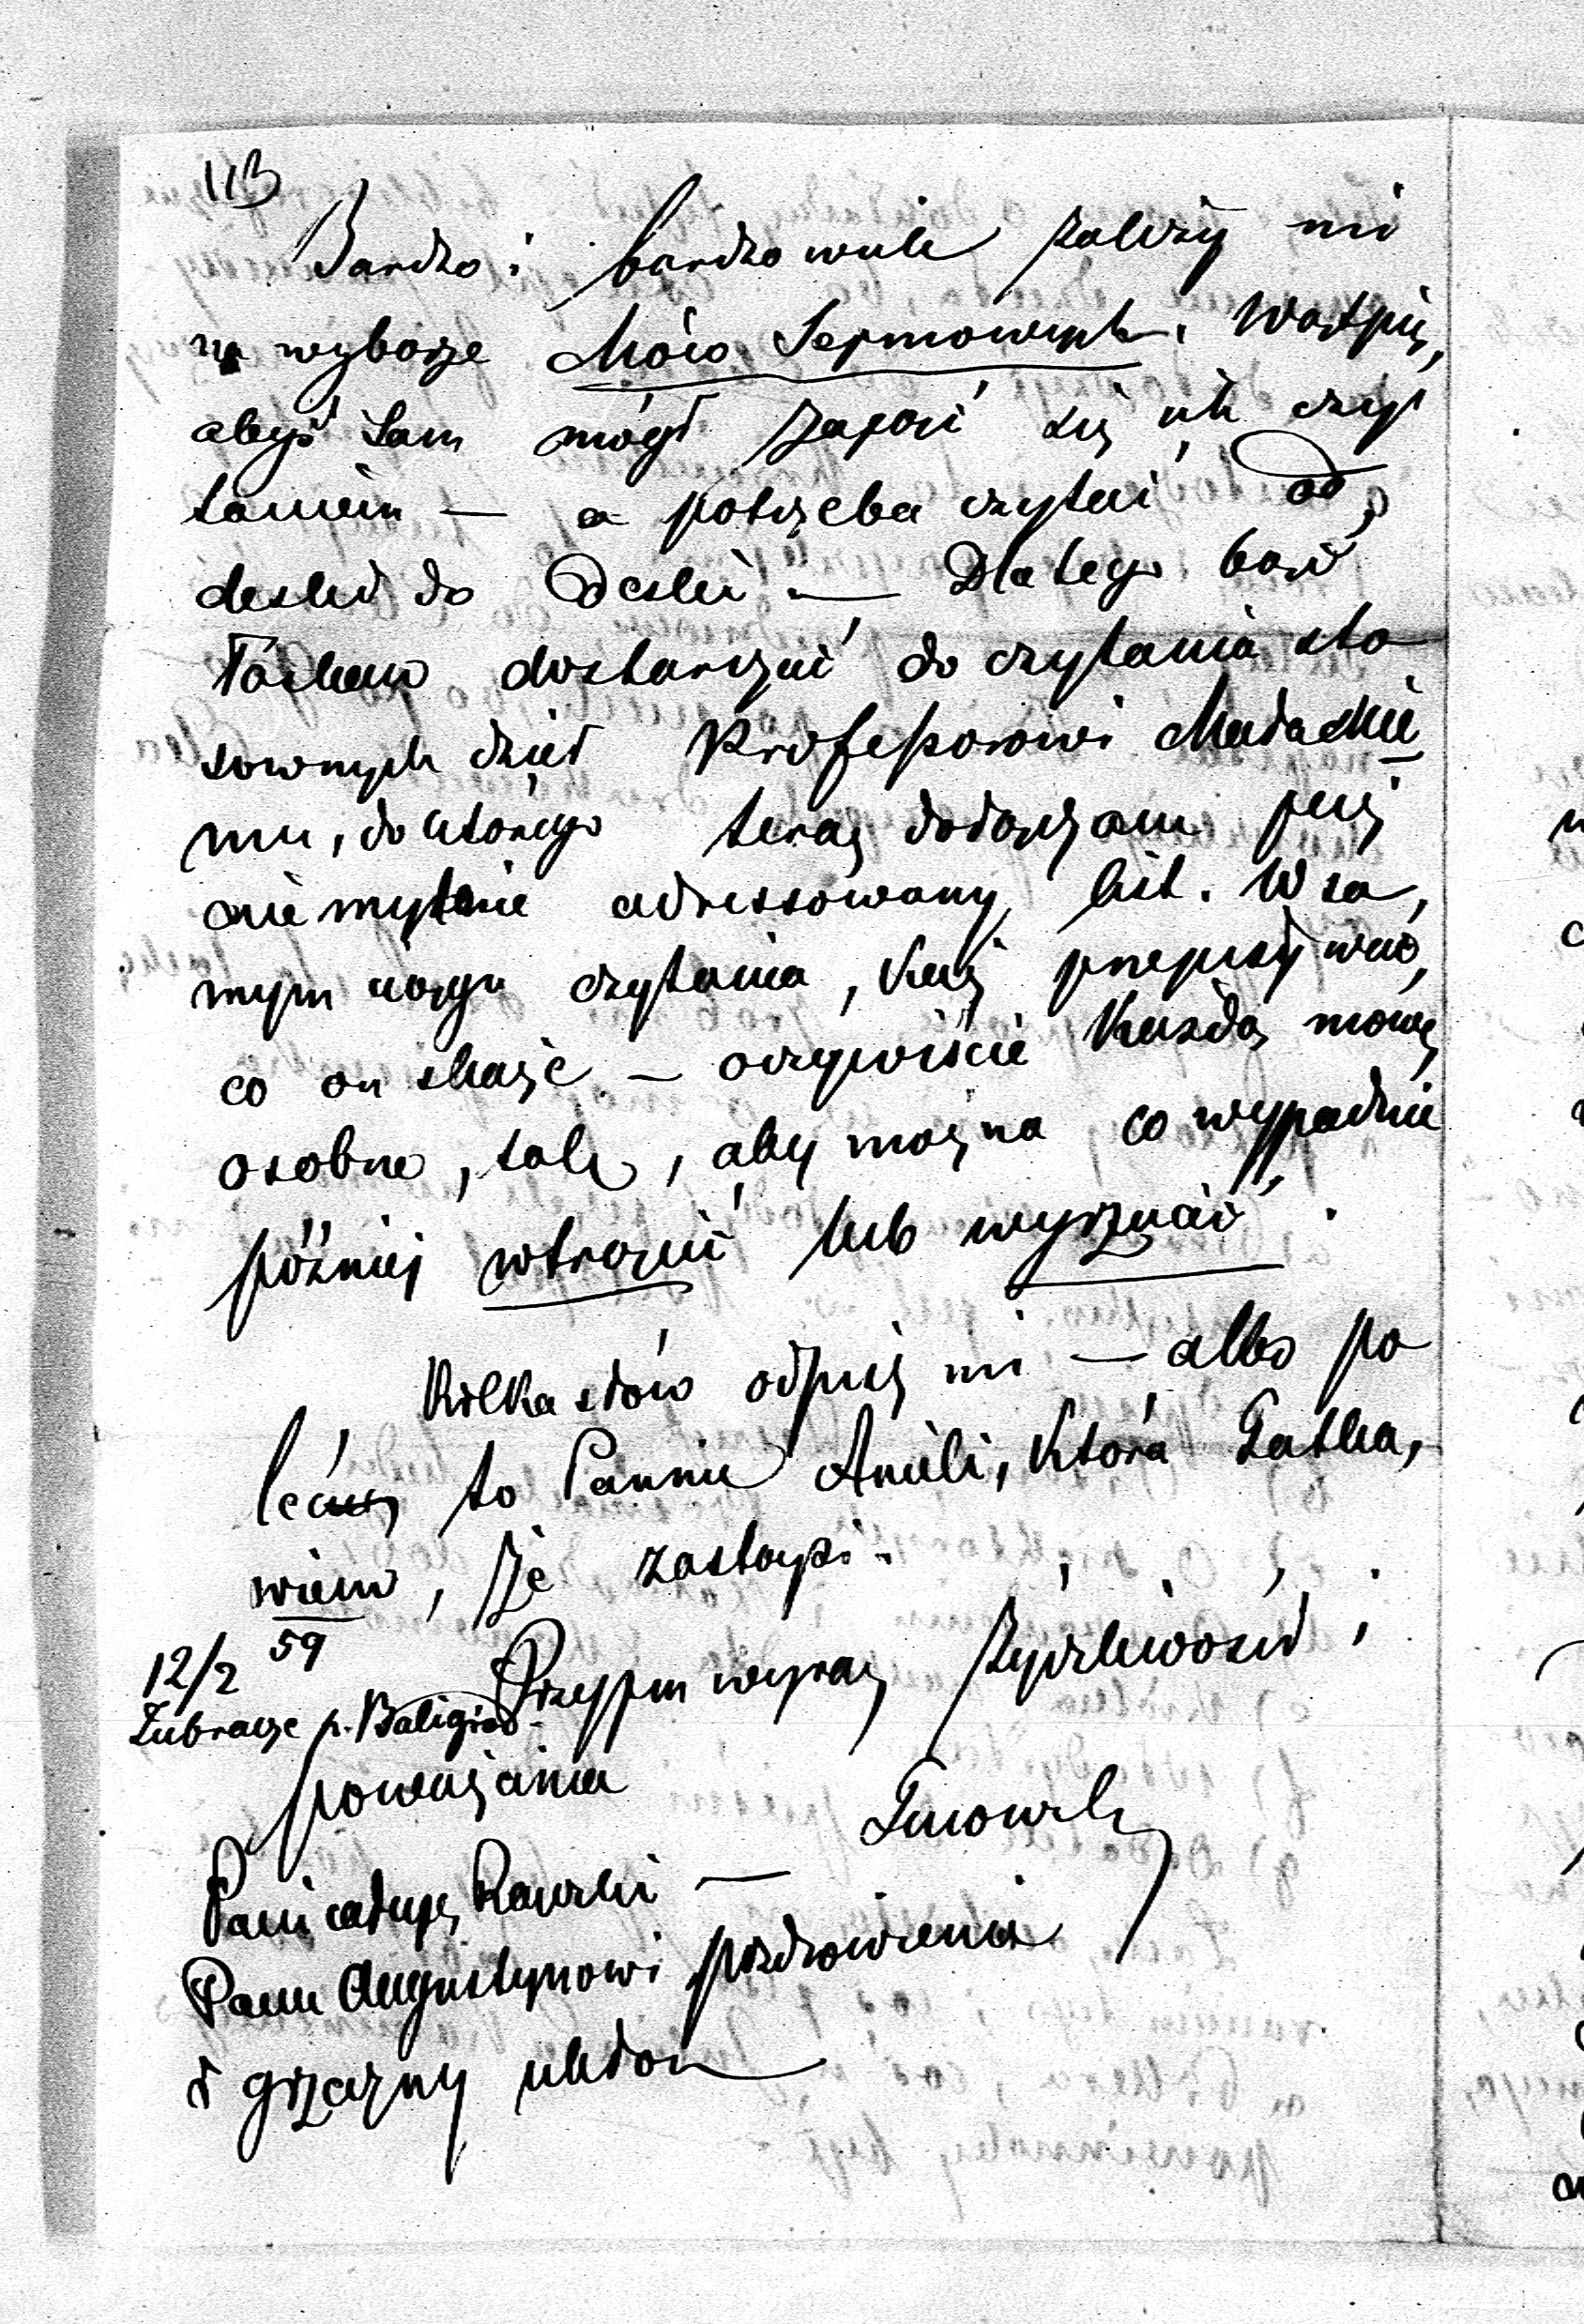 113
Bardzo i bardzo wiele zależy mi
na wyborze Mów Sejmowych. Wątpię,
abyś sam mógł zająć się ich czy
taniem — a potrzeba czytać od
deski do deski. — Dlatego bądź
łaskaw dostarczać do czytania sto
sownych dzieł Professorowi Małeckie
mu, do którego teraz dołączam
adressowany list. W sa,
mym ciągu czytania, każ przepisywać,
co on skaże — oczywiście każdą mowę
osobno, tak, aby można co wypadnie
później wtrącić lub wyrzucić.
Kilka słów odpisz mi — albo po
leć to Pannie Anieli, która Tatka,
wiem, że zastąpi.
12/2 59
Żubracze p. Baligród
Przyjm wyraz życzliwości i
poważania
Pani całuję Rączki —
Panu Augustynowi pozdrowienia
i grzeczny ukłon